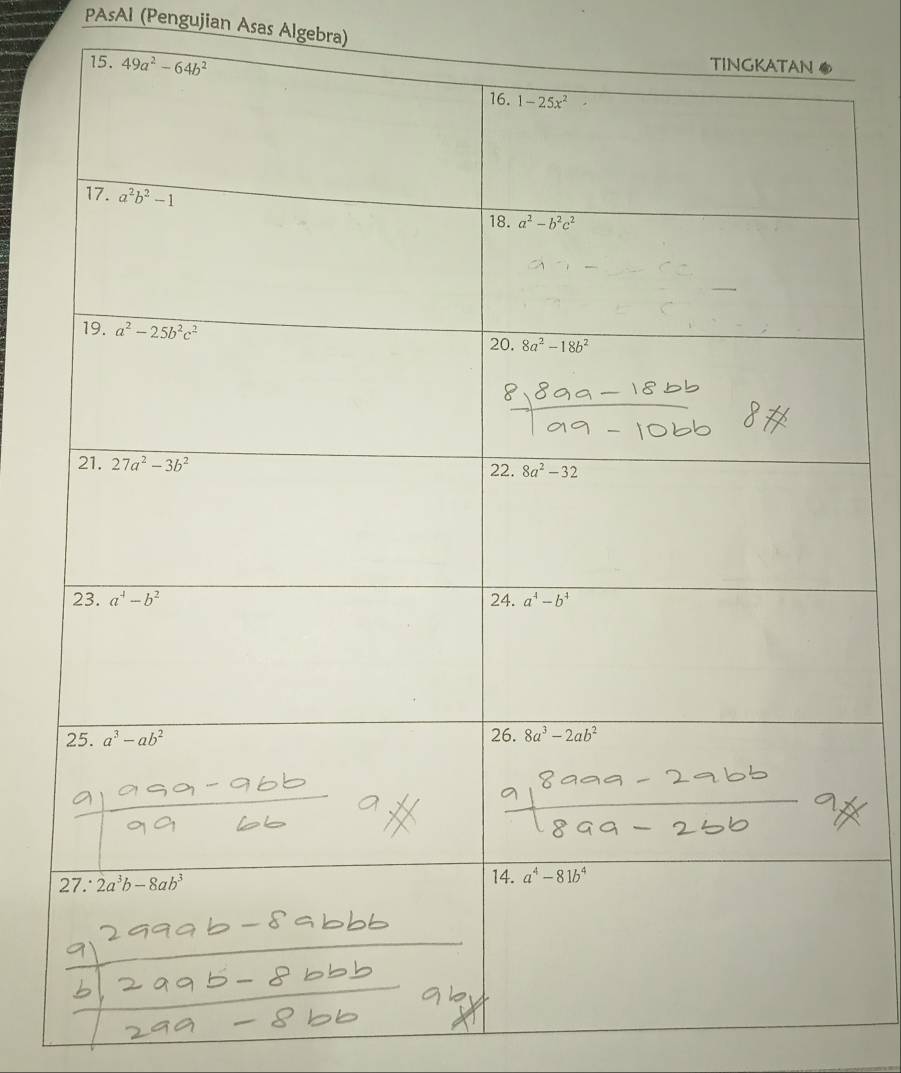 PAsAl (Pengujian Asas Algebra)
TINGKATAN
15. 49a² − 64b²
16. 1 − 25x²
17. a²b² − 1
18. a² − b²c²
19. a² − 25b²c²
20. 8a² − 18b²
8 8aa − 18bb
aa − 10bb 8#
21. 27a² − 3b²
22. 8a² − 32
23. a⁴ − b²
24. a⁴ − b⁴
25. a³ − ab²
a aaa − abb
aa bb a#
26. 8a³ − 2ab²
a 8aaa − 2abb
8aa − 2bb a#
27. 2a³b − 8ab³
a 2aaab − 8abbb
b 2aab − 8bbb
2aa − 8bb ab#
14. a⁴ − 81b⁴